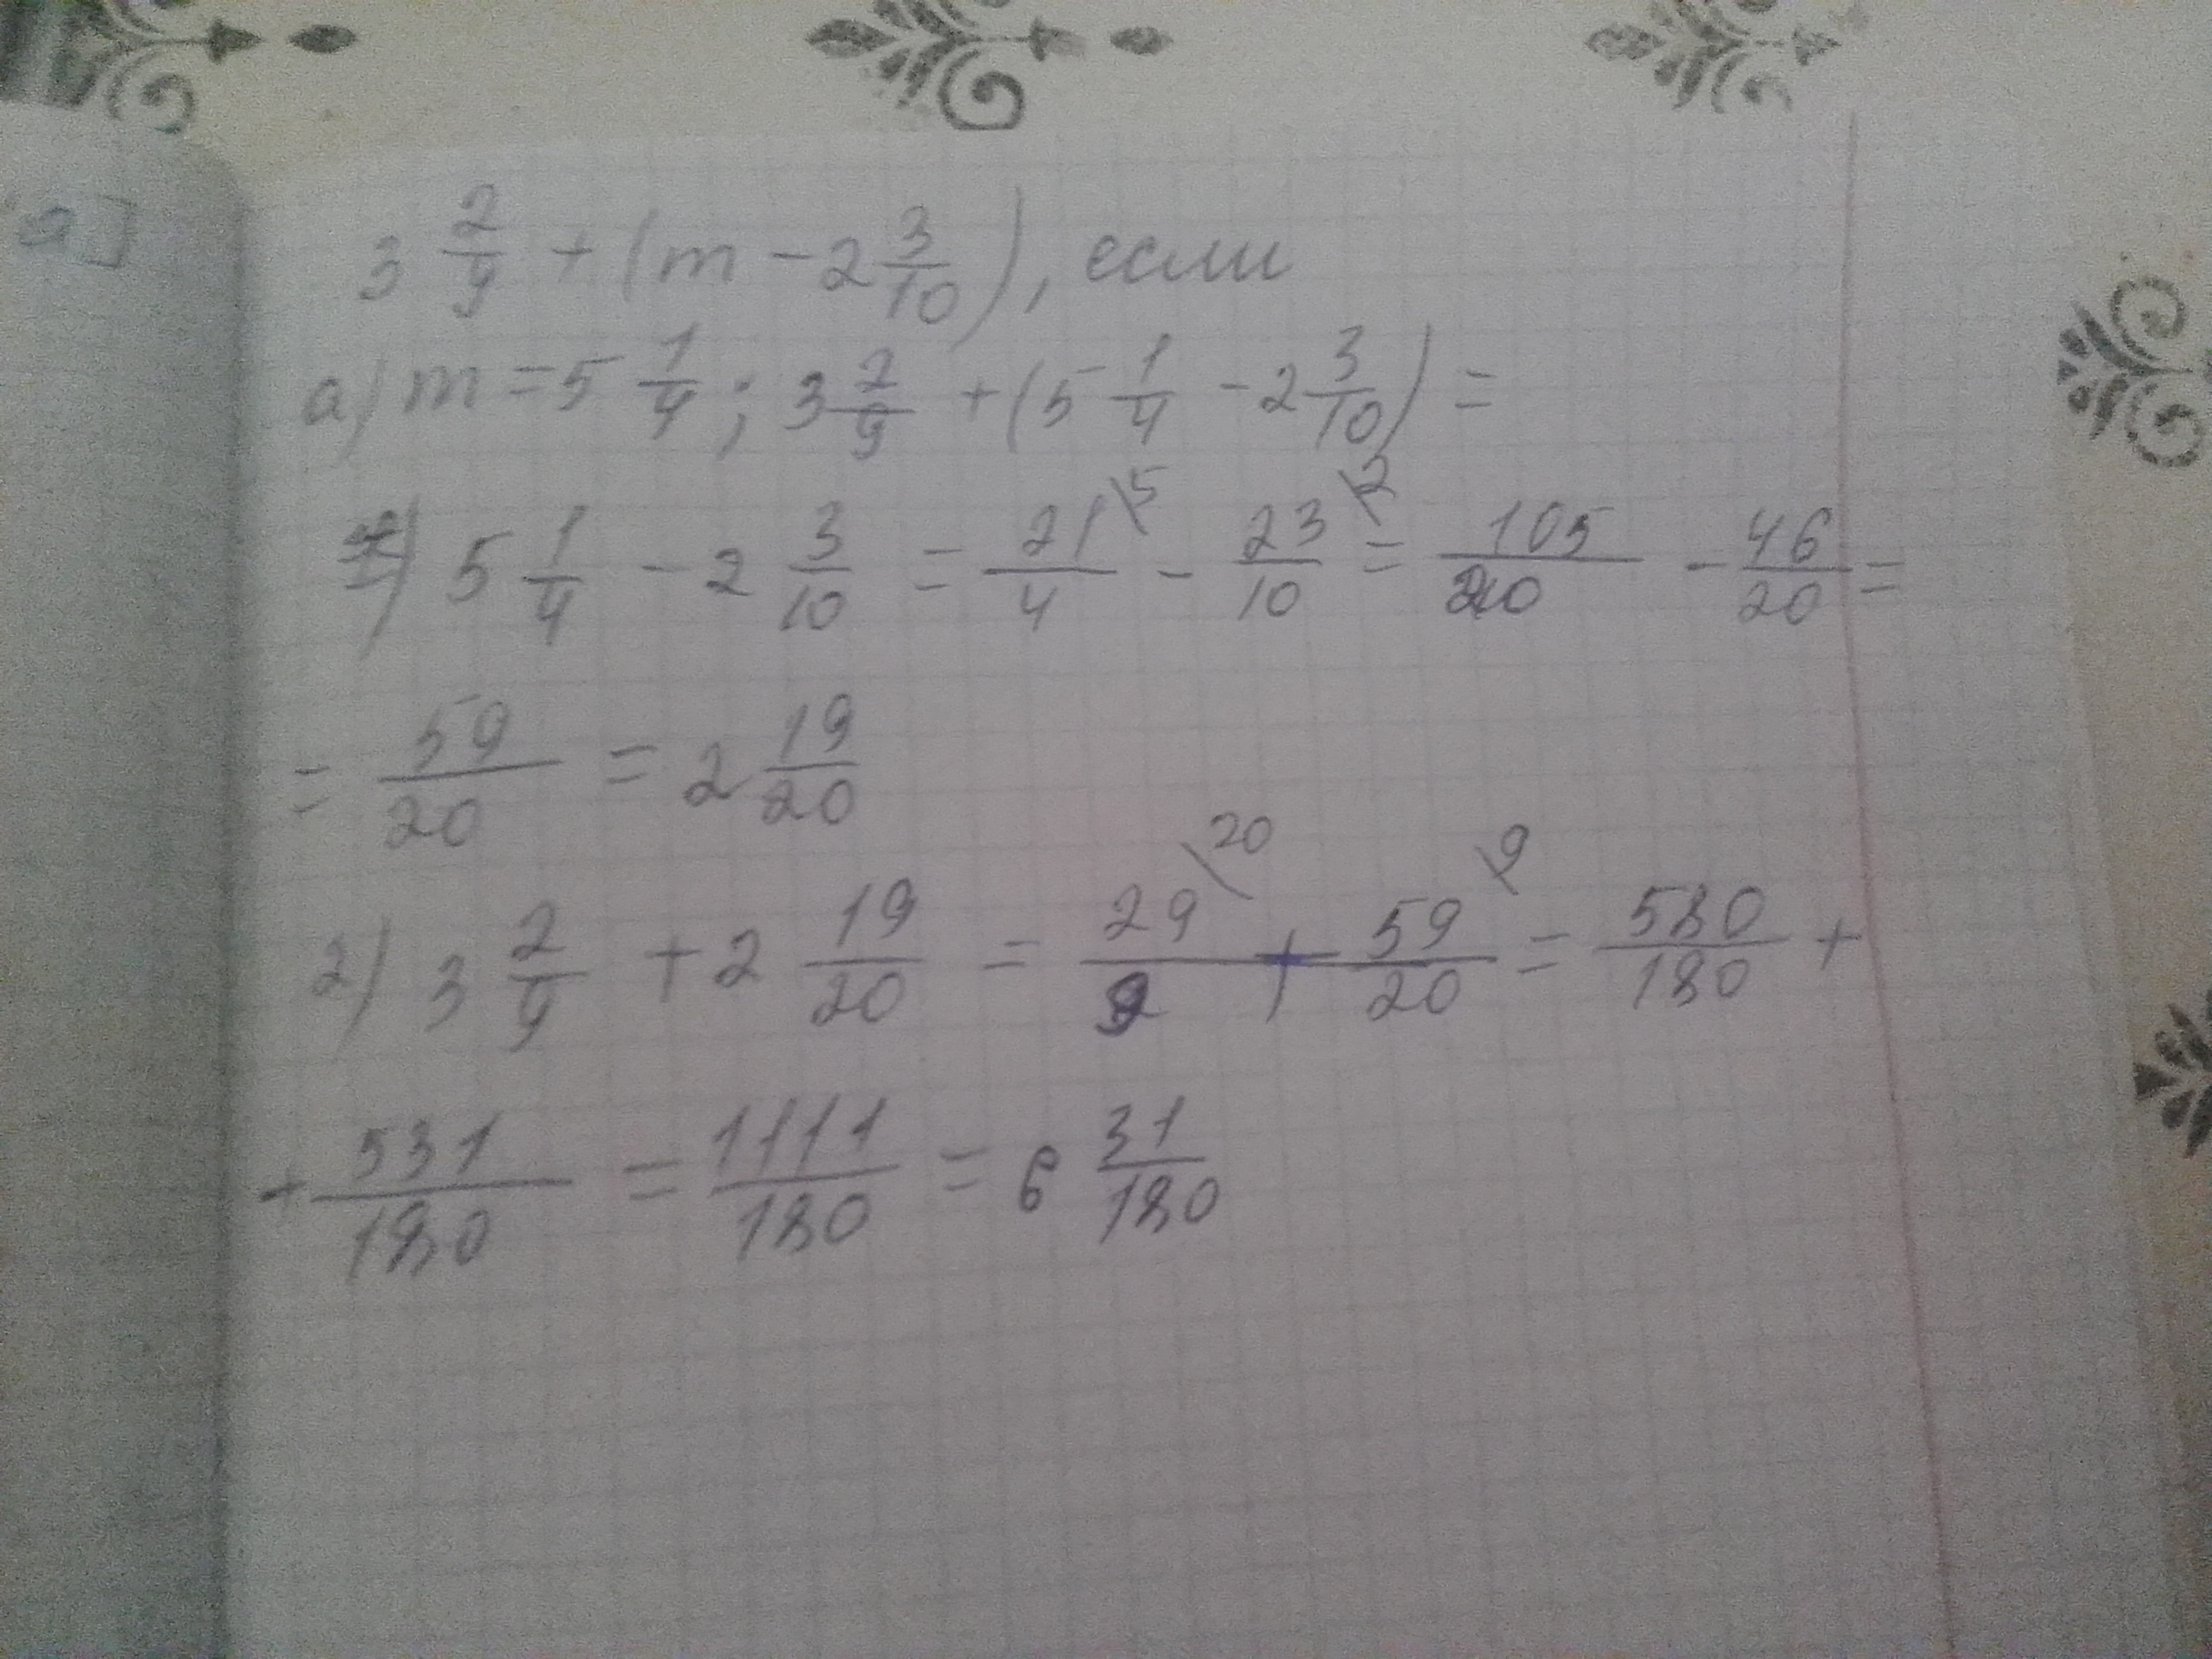 а]
3 2/9 + (m - 2 3/10), если
а) m = 5 1/4; 3 2/9 + (5 1/4 - 2 3/10) =
1) 5 1/4 - 2 3/10 = 21\5/4 - 23\2/10 = 105/20 - 46/20 =
= 59/20 = 2 19/20
2) 3 2/9 + 2 19/20 = 29\20/9 + 59\9/20 = 580/180 +
+ 531/180 = 1111/180 = 6 31/180